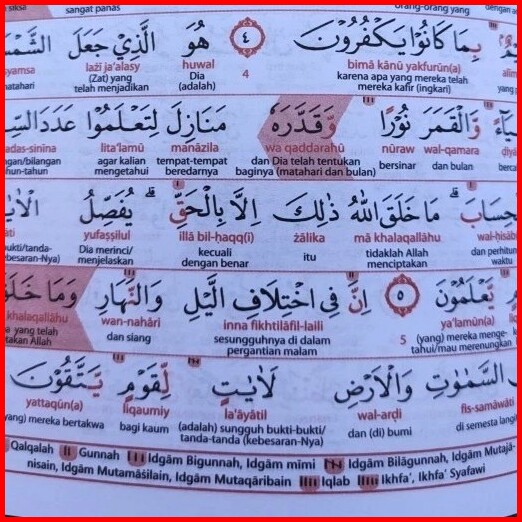 sangat panas
orang-orang yang
بِمَا كَانُوْا يَكْفُرُوْنَ ٤ هُوَ الَّذِيْ جَعَلَ
bimā kānū yakfurūn(a) 4 huwal lażī ja'alasy
karena apa yang mereka telah mereka kafir (ingkari) Dia (adalah) (Zat) yang telah menjadikan
وَّالْقَمَرَ نُوْرًا وَّقَدَّرَهٗ مَنَازِلَ لِتَعْلَمُوْا عَدَدَ
wal-qamara nūraw wa qaddarahū manāzila lita'lamū
dan bulan bersinar dan Dia telah tentukan baginya (matahari dan bulan) tempat-tempat beredarnya agar kalian mengetahui
مَا خَلَقَ اللّٰهُ ذٰلِكَ اِلَّا بِالْحَقِّۗ يُفَصِّلُ
mā khalaqallāhu żālika illā bil-ḥaqq(i) yufaṣṣilu
tidaklah Allah menciptakan itu kecuali dengan benar Dia merinci/ menjelaskan
يَّعْلَمُوْنَ ٥ اِنَّ فِى اخْتِلَافِ الَّيْلِ وَالنَّهَارِ وَمَا
ya'lamūn(a) 5 inna fikhtilāfil-laili wan-nahāri khalaqallāhu
(yang) mereka mengetahui/mau merenungkan sesungguhnya di dalam pergantian malam dan siang
السَّمٰوٰتِ وَالْاَرْضِ لَاٰيٰتٍ لِّقَوْمٍ يَّتَّقُوْنَ
fis-samāwāti wal-arḍi la'āyātil liqaumiy yattaqūn(a)
di semesta dan (di) bumi (adalah) sungguh bukti-bukti/ tanda-tanda (kebesaran-Nya) bagi kaum (yang) mereka bertakwa
Qalqalah Gunnah Idgām Bigunnah, Idgām mīmi Idgām Bilāgunnah, Idgām Mutajā-
nisain, Idgām Mutamāṡilain, Idgām Mutaqāribain Iqlab Ikhfa', Ikhfa' Syafawi